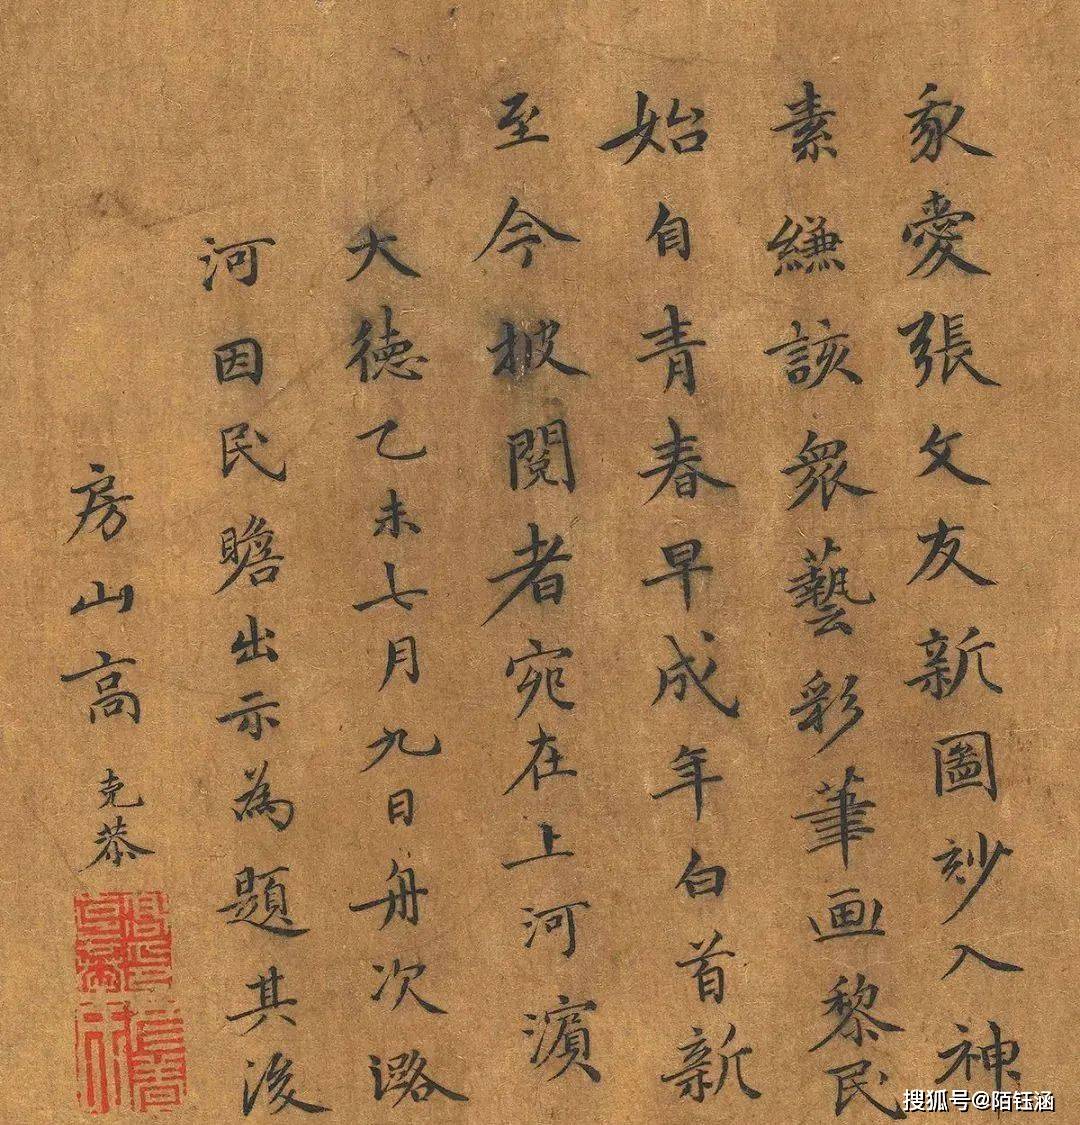 我愛張文友新圖妙入神
素縑該衆藝彩筆画黎民
始自青春早成年白首新
至今披閱者宛在上河濱
大德乙未七月九日舟次潞
河因民瞻出示為題其後
房山高克恭
搜狐号@陌钰涵